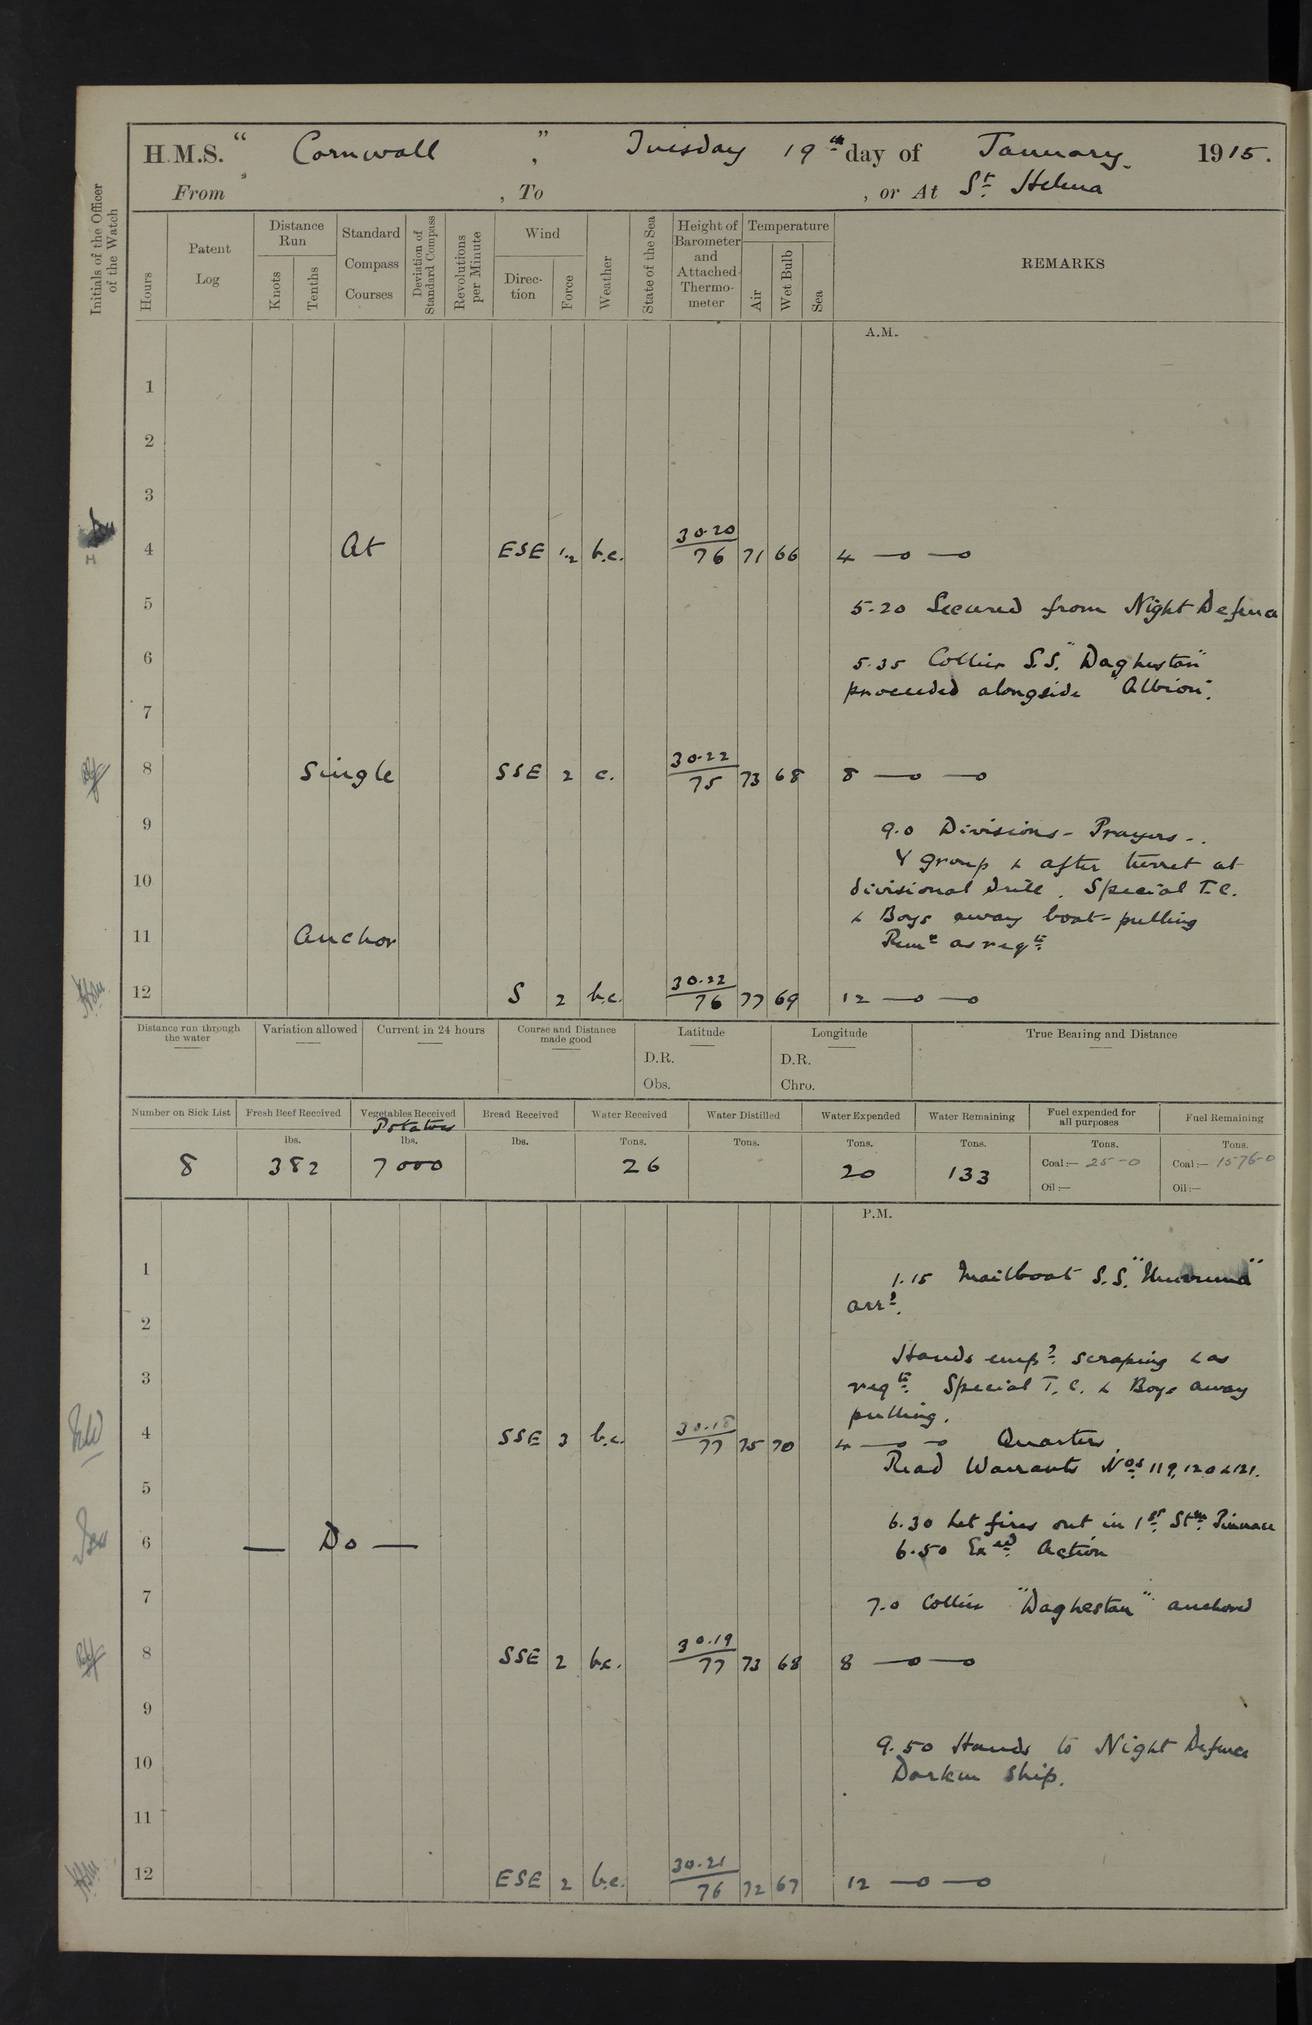 H.M.S. " Cornwall ", Tuesday 19th day of January 1915.
From , To , or At St Helena
Initials of the Officer of the Watch
Hours
Patent Log
Distance Run
Knots
Tenths
Standard Compass Courses
Deviation of Standard Compass
Revolutions per Minute
Wind
Direction
Force
Weather
State of the Sea
Height of Barometer and Attached Thermometer
Temperature
Air
Wet Bulb
Sea
REMARKS
A.M.
1
2
3
4 At ESE 1.2 b.c. 30.20 76 71 66 4 —o —o
5 5.20 Secured from Night Defence
6 5.35 Collier S.S. "Daghestan"
proceeded alongside "Albion".
7
8 Single SSE 2 c. 30.22 75 73 68 8 —o —o
9 9.0 Divisions - Prayers -.
Y group & after turret at
10 divisional drill. Special T.C.
& Boys away boat-pulling
11 Anchor Remr as reqte
12 S 2 b.c. 30.22 76 77 69 12 —o —o
Distance run through the water
Variation allowed
Current in 24 hours
Course and Distance made good
Latitude
D.R.
Obs.
Longitude
D.R.
Chro.
True Bearing and Distance
Number on Sick List
Fresh Beef Received
Vegetables Received
Potatoes
Bread Received
Water Received
Water Distilled
Water Expended
Water Remaining
Fuel expended for all purposes
Fuel Remaining
lbs. lbs. lbs. Tons. Tons. Tons. Tons. Tons. Tons.
8 382 7000 26 20 133 Coal:— 25-0 Coal:— 1576-0
Oil:— Oil:—
P.M.
1 1.15 Mailboat S.S.
arrd.
2
Hands empd. scraping & as
3 reqte. Special T.C. & Boys away
pulling.
4 SSE 3 b.c. 30.18 77 75 70 4 —o —o Quarters.
Read Warrants Nos 119, 120 & 121.
5
6.30 Let fires out in 1st. Stm. Pinnace
6 — Do — 6.50 Exed. Action
7 7.0 Collier "Daghestan" anchored
8 SSE 2 b.c. 30.19 77 73 68 8 —o —o
9
9.50 Hands to Night Defence
10 Darken ship.
11
12 ESE 2 b.c. 30.21 76 72 67 12 —o —o